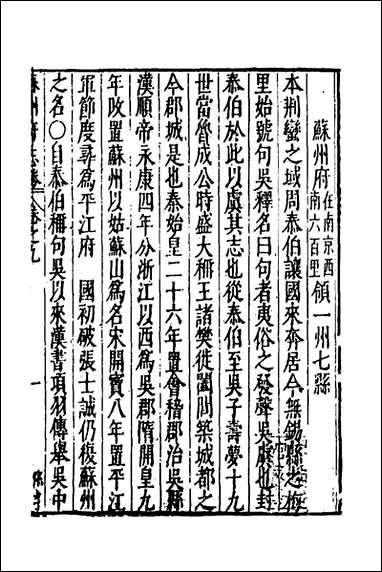 蘇州府在南京西南六百里領一州七縣
本荆蠻之域周泰伯讓國來奔居今無錫縣之梅
里始號句吳釋名曰句者夷俗之發聲吳虞也封
泰伯於此以虞其志也從泰伯至吳子壽夢十九
世當魯成公時盛大稱王諸樊徙闔閭築城都之
今郡城是也秦始皇二十六年置會稽郡治吳縣
漢順帝永康四年分浙江以西為吳郡隋開皇九
年改置蘇州以姑蘇山為名宋開寶八年置平江
軍節度尋為平江府 國初破張士誠仍復蘇州
之名○自泰伯稱句吳以來漢書項羽傳舉吳中
蘇州府志
一